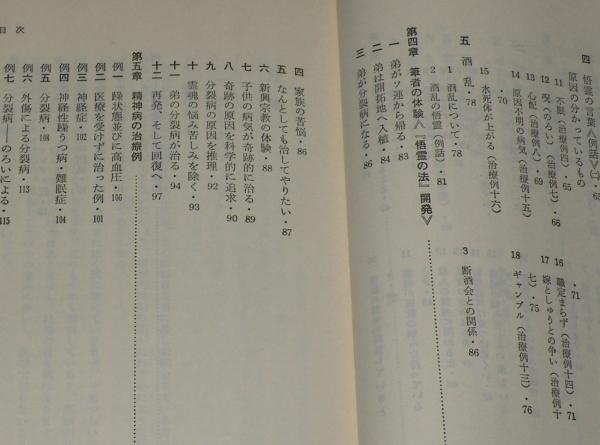 四 悟霊の言葉〈例話〉(二)・65
原因の分かっているもの
11 不眠(治療例四)・65
12 呪(のろい)(治療例七)・66
13 心配(治療例八)・69
14 原因不明の病気(治療例十五)
・71
15 水死体が上がる(治療例十六)
16 職定まらず(治療例十四)・71
17 嫁としゅうとの争い(治療例十
七)・75
18 ギャンブル(治療例十三)・76
五 酒乱・78
1 酒乱について・78
2 酒乱の悟霊(例話)・81
3 断酒会との関係・86
第四章 筆者の体験〈『悟霊の法』開発〉
一 弟がソ連から帰る・83
二 弟は開拓地へ入植・84
三 弟が分裂病になる・86
四 家族の苦悩・86
五 なんとしても治してやりたい・87
六 新興宗教の体験・88
七 子供の病気が奇跡的に治る・89
八 奇跡の原因を科学的に追求・90
九 分裂病の原因を推理・92
十 霊魂の悩み苦しみを除く・93
十一 弟の分裂病が治る・94
十二 再発、そして回復へ・97
第五章 精神病の治療例
例一 躁状態並びに高血圧・100
例二 医療を受けずに治った例・101
例三 神経症・102
例四 神経性躁うつ病・難眠症・104
例五 分裂病・108
例六 外傷による分裂病・113
例七 分裂病——のろいによる・115
目次